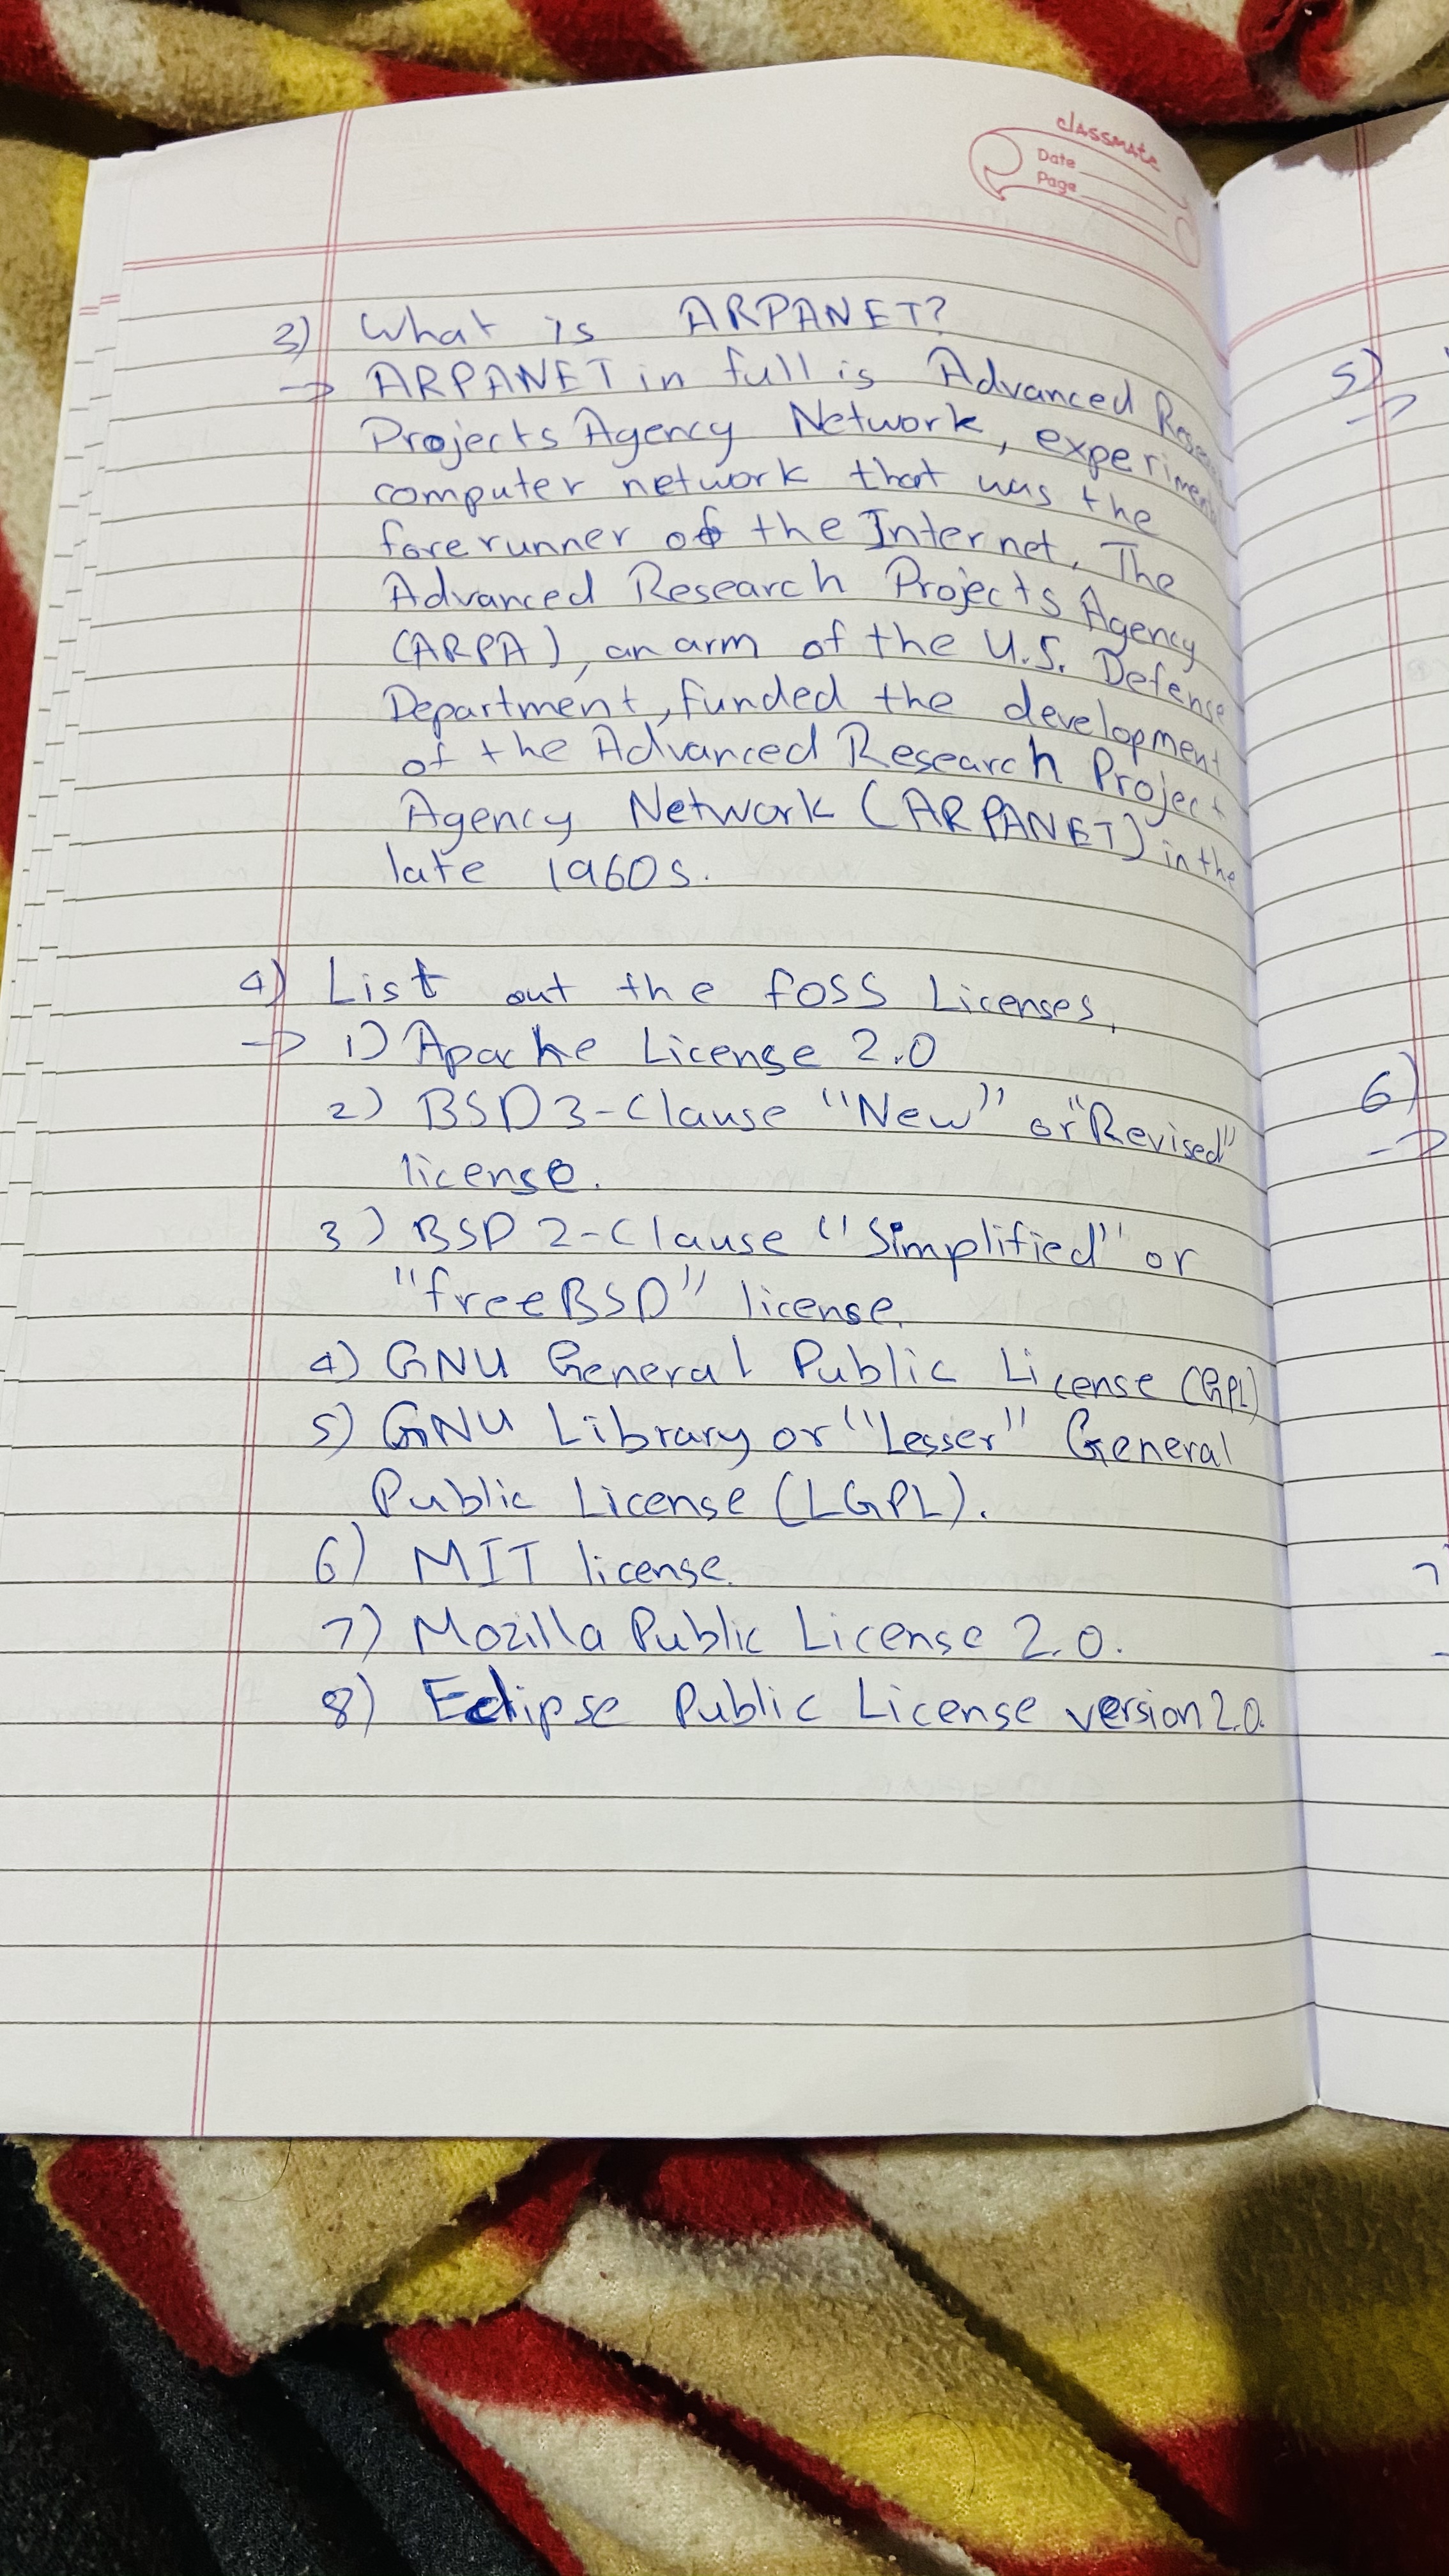 classmate
Date
Page
3) What is ARPANET?
→ ARPANET in full is Advanced
Projects Agency Network, experimental
computer network that was the
forerunner of the Internet. The
Advanced Research Projects Agency
(ARPA), an arm of the U.S. Defense
Department, funded the development
of the Advanced Research Project
Agency Network (ARPANET) in the
late 1960s.
4) List out the foss Licenses.
→ 1) Apache License 2.0
2) BSD 3-Clause "New" or "Revised"
license.
3) BSD 2-Clause "Simplified" or
"freeBSD" license.
4) GNU General Public License (GPL)
5) GNU Library or "Lesser" General
Public License (LGPL).
6) MIT license.
7) Mozilla Public License 2.0.
8) Eclipse Public License version 2.0.
5)
→
6)
→